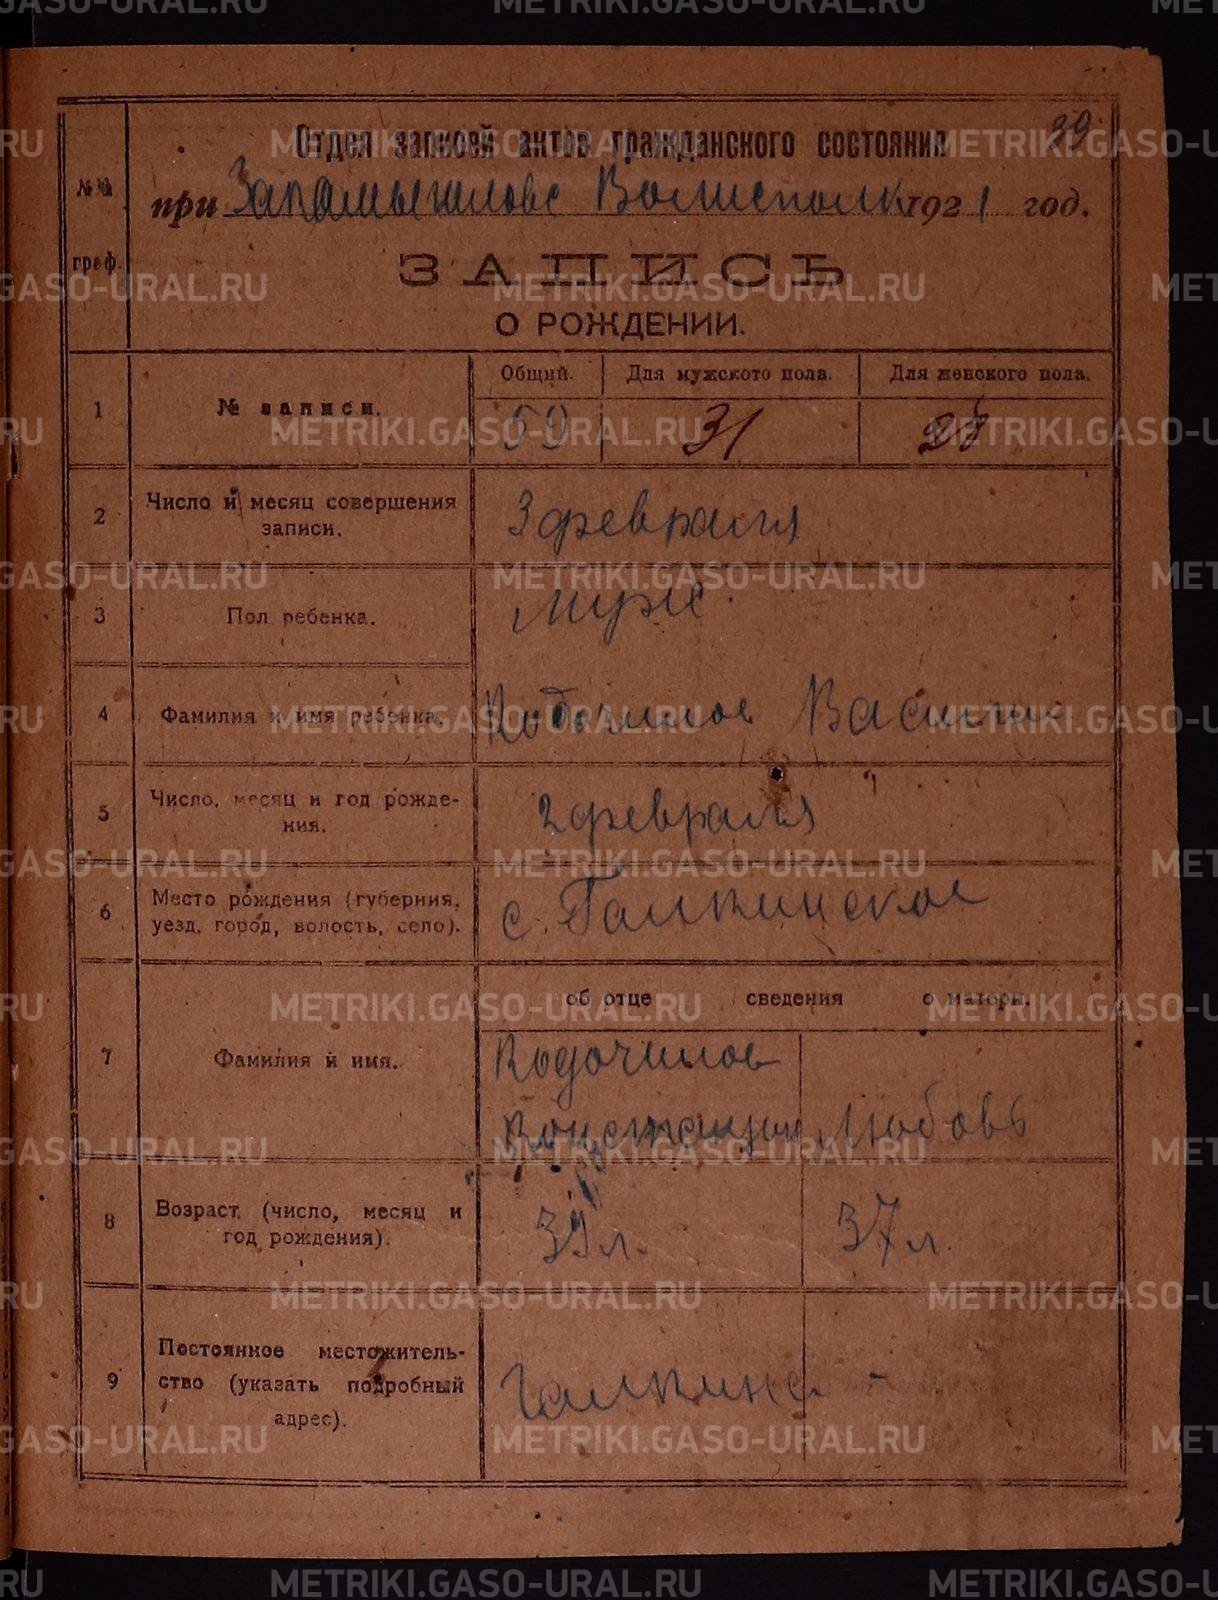 39
Отдел записей актов гражданского состояния
при Закамышловс Волисполк 1921 год.
№№ граф.
ЗАПИСЬ
О РОЖДЕНИИ.
1 № записи. Общий. Для мужского пола. Для женского пола.
59 31 28
2 Число и месяц совершения записи. 3 февраля
3 Пол ребенка. Муже
4 Фамилия и имя ребенка. Василис
5 Число, месяц и год рожде-
ния. 2 февраля
6 Место рождения (губерния,
уезд, город, волость, село). с. Галкинское
об отце сведения о матери.
7 Фамилия и имя. Кодочилов
Константин Любовь
8 Возраст (число, месяц и
год рождения). 39 л. 37 л.
9 Постоянное местожитель-
ство (указать подробный
адрес). Галкинс -
METRIKI.GASO-URAL.RU